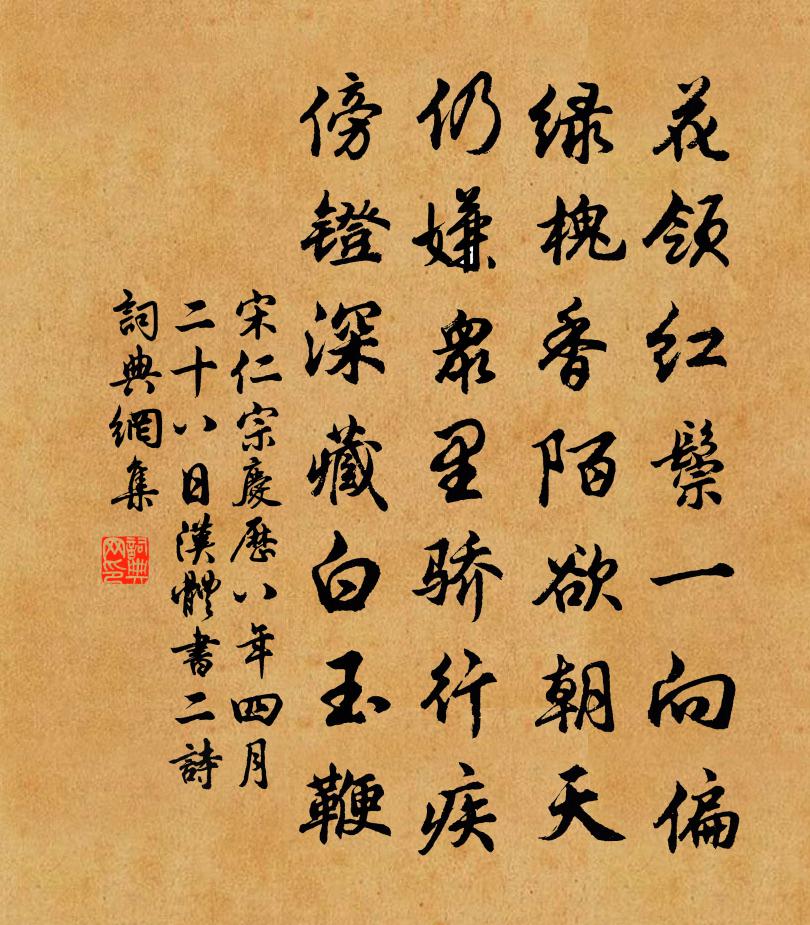 花领红鬃一向偏
绿槐香陌欲朝天
仍嫌众里骄行疾
傍镫深藏白玉鞭
宋仁宗慶歷八年四月
二十八日漢體書二詩
詞典網集
詞典
网印